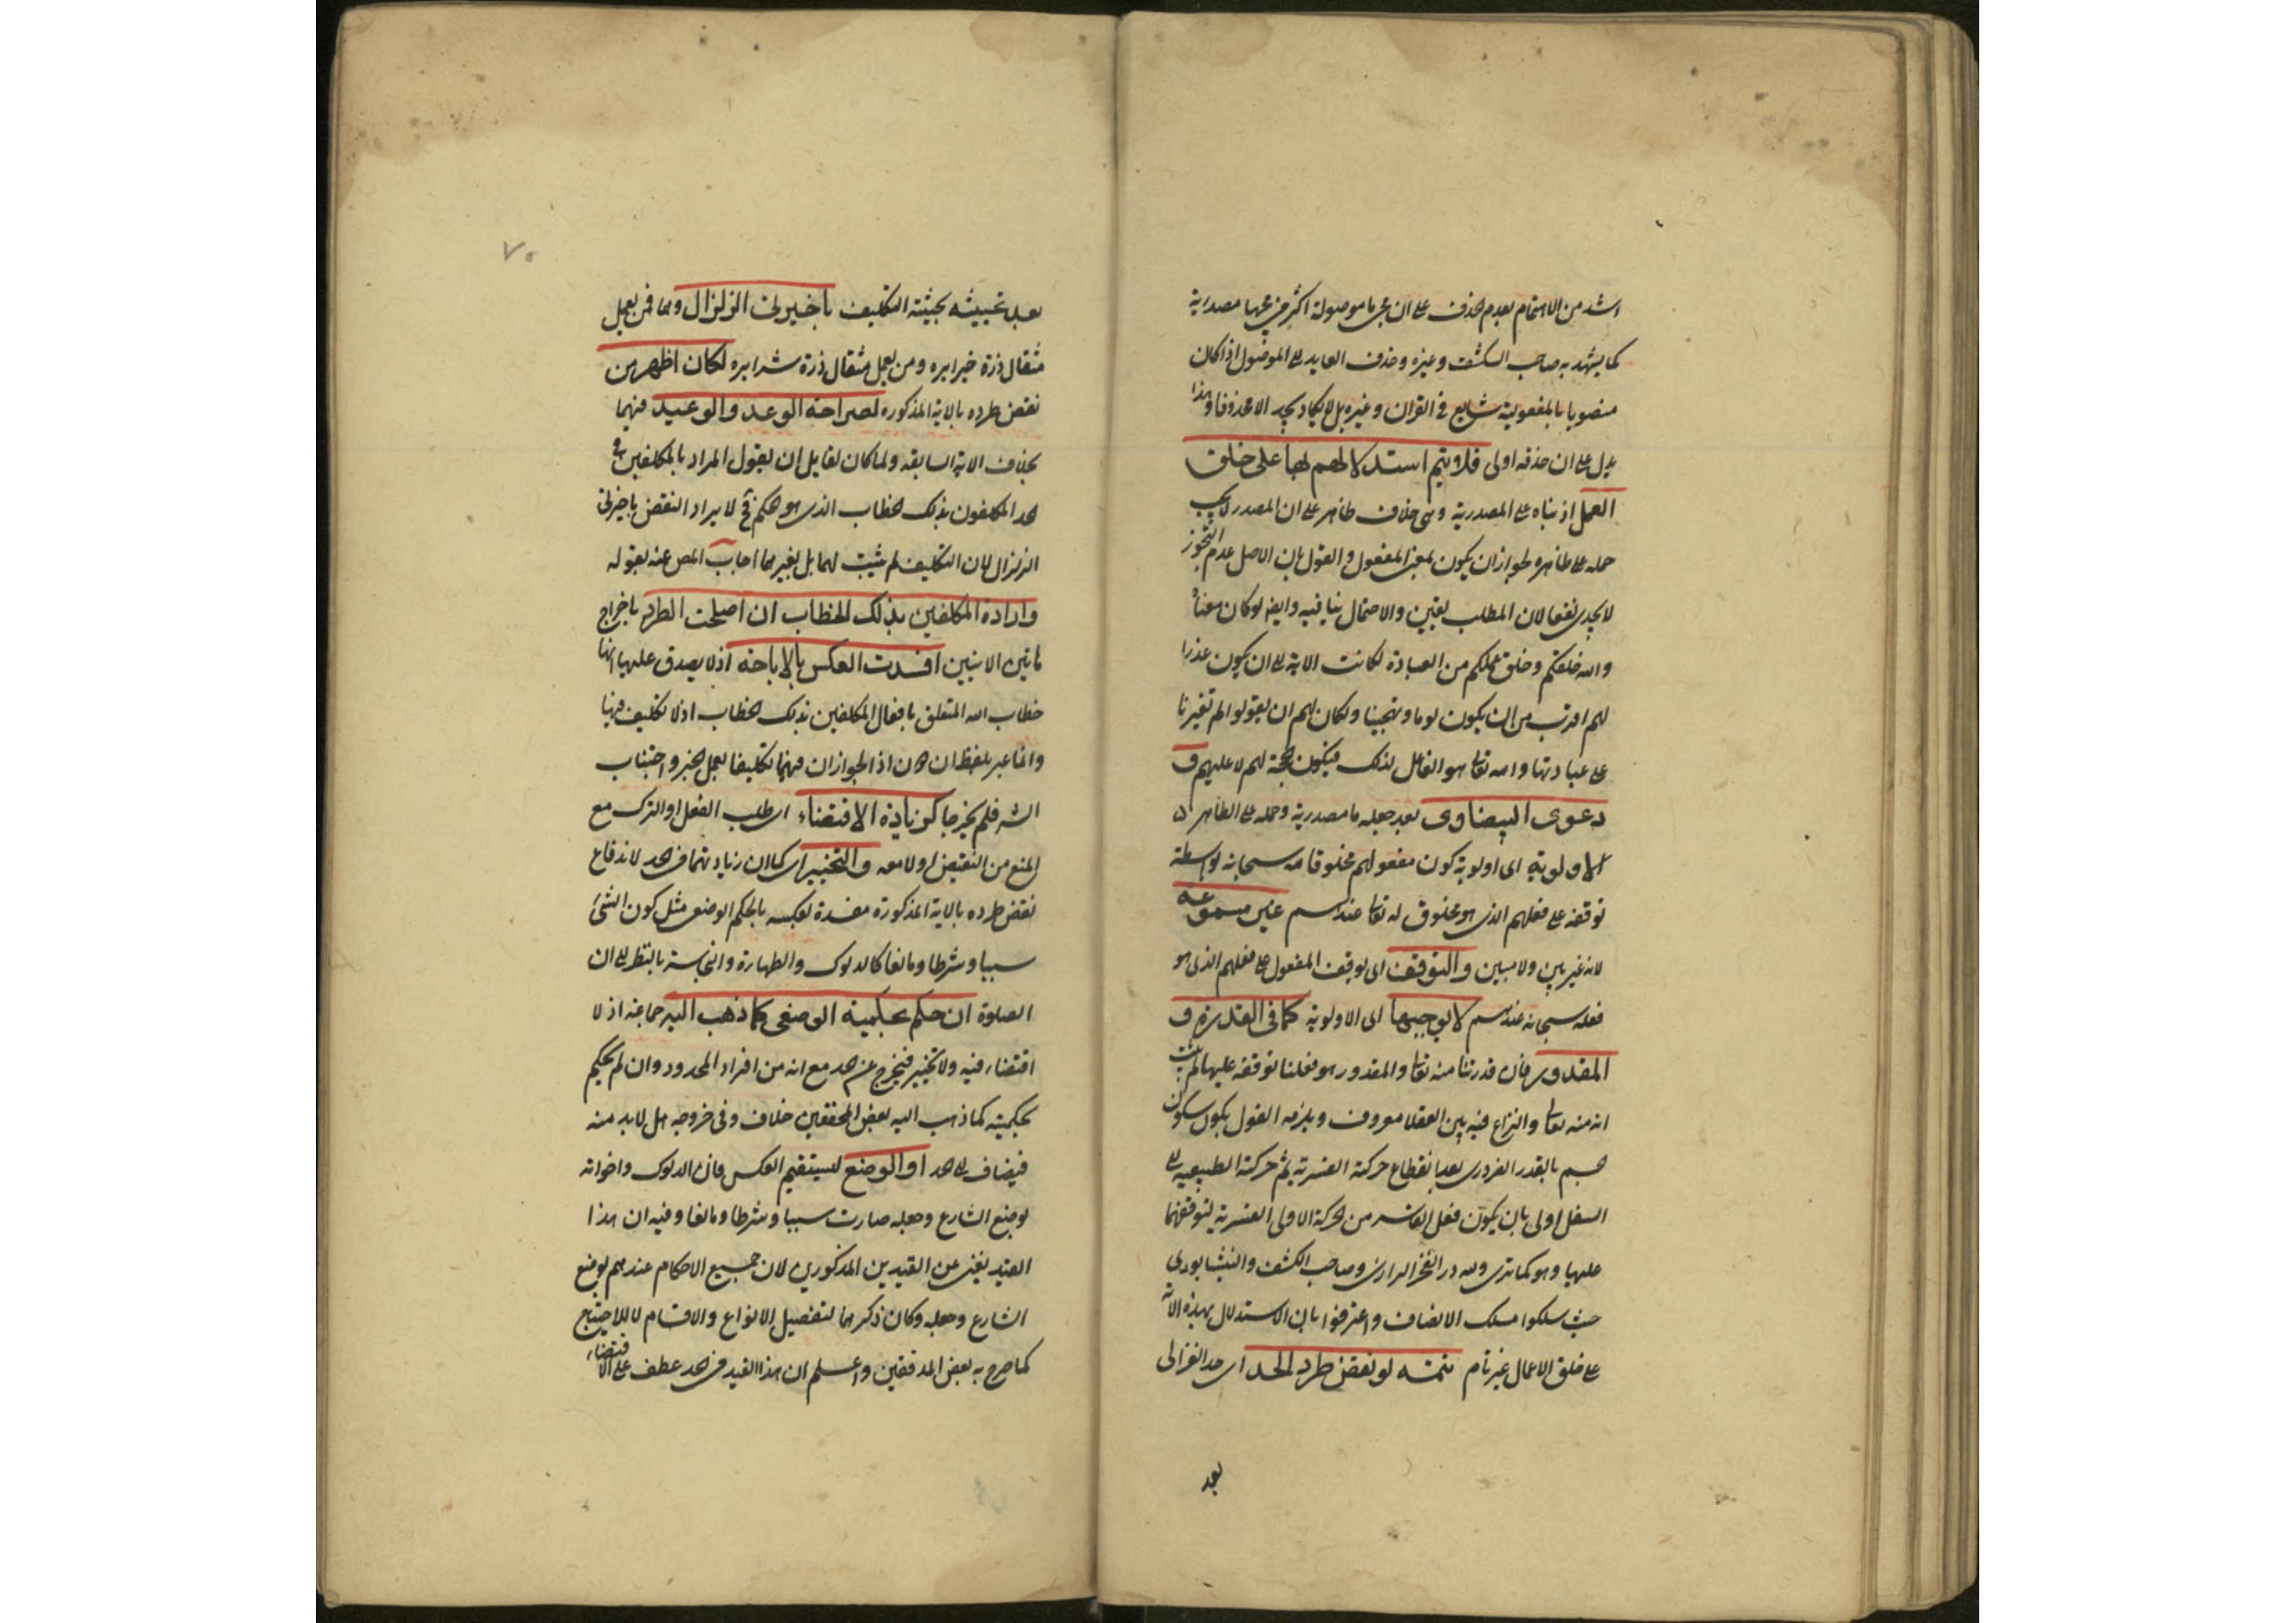 اشد من الاهتمام بعدم الحذف على ان مجئ ما موصولة اكثر من مجيئها مصدرية
كما يشهد به صاحب الكشف وغيره وحذف العايد الى الموصول اذا كان
منصوبا بالمفعولية شايع في القران وغيره بل لا يكاد يجد الا محذوفا وهذا
يدل على ان حذفه اولى فلا ويتم استدلالهم بها على خلق
العمل اذ بناه على المصدرية وهي خلاف ظاهر على ان المصدر لا يجب
حمله على ظاهره لجواز ان يكون بمعنى المفعول والقول بان الاصل عدم التجوز
لا يجدى نفعا لان المطلب يقين والاحتمال ينافيه وايضا لو كان معناه
والله خلقكم وخلق عملكم من العبادة لكانت الاية الى ان يكون عذرا
لهم اقرب من ان يكون لوما وتهجينا ولكان لهم ان يقولوا لم تغيرنا
على عبادتها والله تعالى هو الفاعل لذلك فيكون الحجة لهم لا عليهم و
دعوى البيضاوى بعد جعله ما مصدرية وحمله على الظاهر
الاولوية اى اولوية كون مفعولهم مخلوقا لله سبحانه بواسطة
توقفه على فعلهم الذى هو مخلوق له تعالى عندهم غير مسموعة
لانه غير بين ولا مبين والتوقف اى توقف المفعول على فعلهم الذى هو
فعله سبحانه عندهم لا يوجبها اى الاولوية كما في القدرة و
المقدور فان قدرتنا منه تعالى والمقدور هو فعلنا توقفه عليها لم يثبت
انه منه تعالى والنزاع فيه بين العقلا معروف ويلزمه القول بكون سكون
جسم بالقدر الضرورى بعد انقطاع حركته القسرية ثم حركته الطبيعية الى
السفل اولى بان يكون فعل القاسر من الحركة الاولى القسرية لتوقفهما
عليها وهو كما ترى ولله در الفخر الرازى وصاحب الكشف والنيشابورى
حيث سلكوا مسلك الانصاف واعترفوا بان الاستدلال بهذه الاية
على خلق الاعمال غير تام تتمه لو نقض طرد الحد اى حد الغزالى
بعد
٧٥
بعد تحييثه بحيثية التكليف باخيرتى الزلزال وهما فمن يعمل
مثقال ذرة خيرا يره ومن يعمل مثقال ذرة شرا يره لكان اظهر من
نقض طرده بالاية المذكوره لصراحته الوعد والوعيد فيهما
بخلاف الاية السابقه ولما كان لقايل ان يقول المراد بالمكلفين في
الحد المكلفون بذلك الخطاب الذى هو الحكم فح لا يراد النقض باخيرتى
الزلزال لان التكليف لم يثبت لهما بل بغيرهما اجاب المص عنه بقوله
وارادة المكلفين بذلك الخطاب ان اصلحت الطرد باخراج
هاتين الايتين افسدت العكس بالاباحة اذ لا يصدق عليها انها
خطاب الله المتعلق بافعال المكلفين بذلك الخطاب اذ لا تكليف فيها
وانما عبر بلفظ ان هنا اذ الجواز ان فيهما تكليفا بعمل الخير واجتناب
الشر فلم يخرجا كزيادة الاقتضاء اى طلب الفعل او الترك مع
المنع من النقيض او لا معه والتخيير اى كما ان زيادتهما في الحد لاندفاع
نقض طرده بالاية المذكورة مفسدة لعكسه بالحكم الوضعى مثل كون الشئ
سببا وشرطا ومانعا كالدلوك والطهارة والنجاسة بالنظر الى ان
الصلوة ان حكم بحكمية الوضعى كما ذهب اليه جماعة اذ لا
اقتضاء فيه ولا تخيير فيخرج عن الحد مع انه من افراد المحدود وان لم يحكم
بحكميته كما ذهب اليه بعض المحققين خلاف وفى خروجه هل لابد منه
فيضاف الى الحد او الوضع ليستقيم العكس فان الدلوك واخواته
بوضع الشارع وجعله صارت سببا وشرطا ومانعا وفيه ان هذا
القيد يغنى عن القيدين المذكورين لان جميع الاحكام عندهم بوضع
الشارع وجعله وكان ذكرهما لتفصيل الانواع والاقسام لا للاحتياج
كما صرح به بعض المدققين واعلم ان هذا القيد في الحد عطف على الاقتضاء